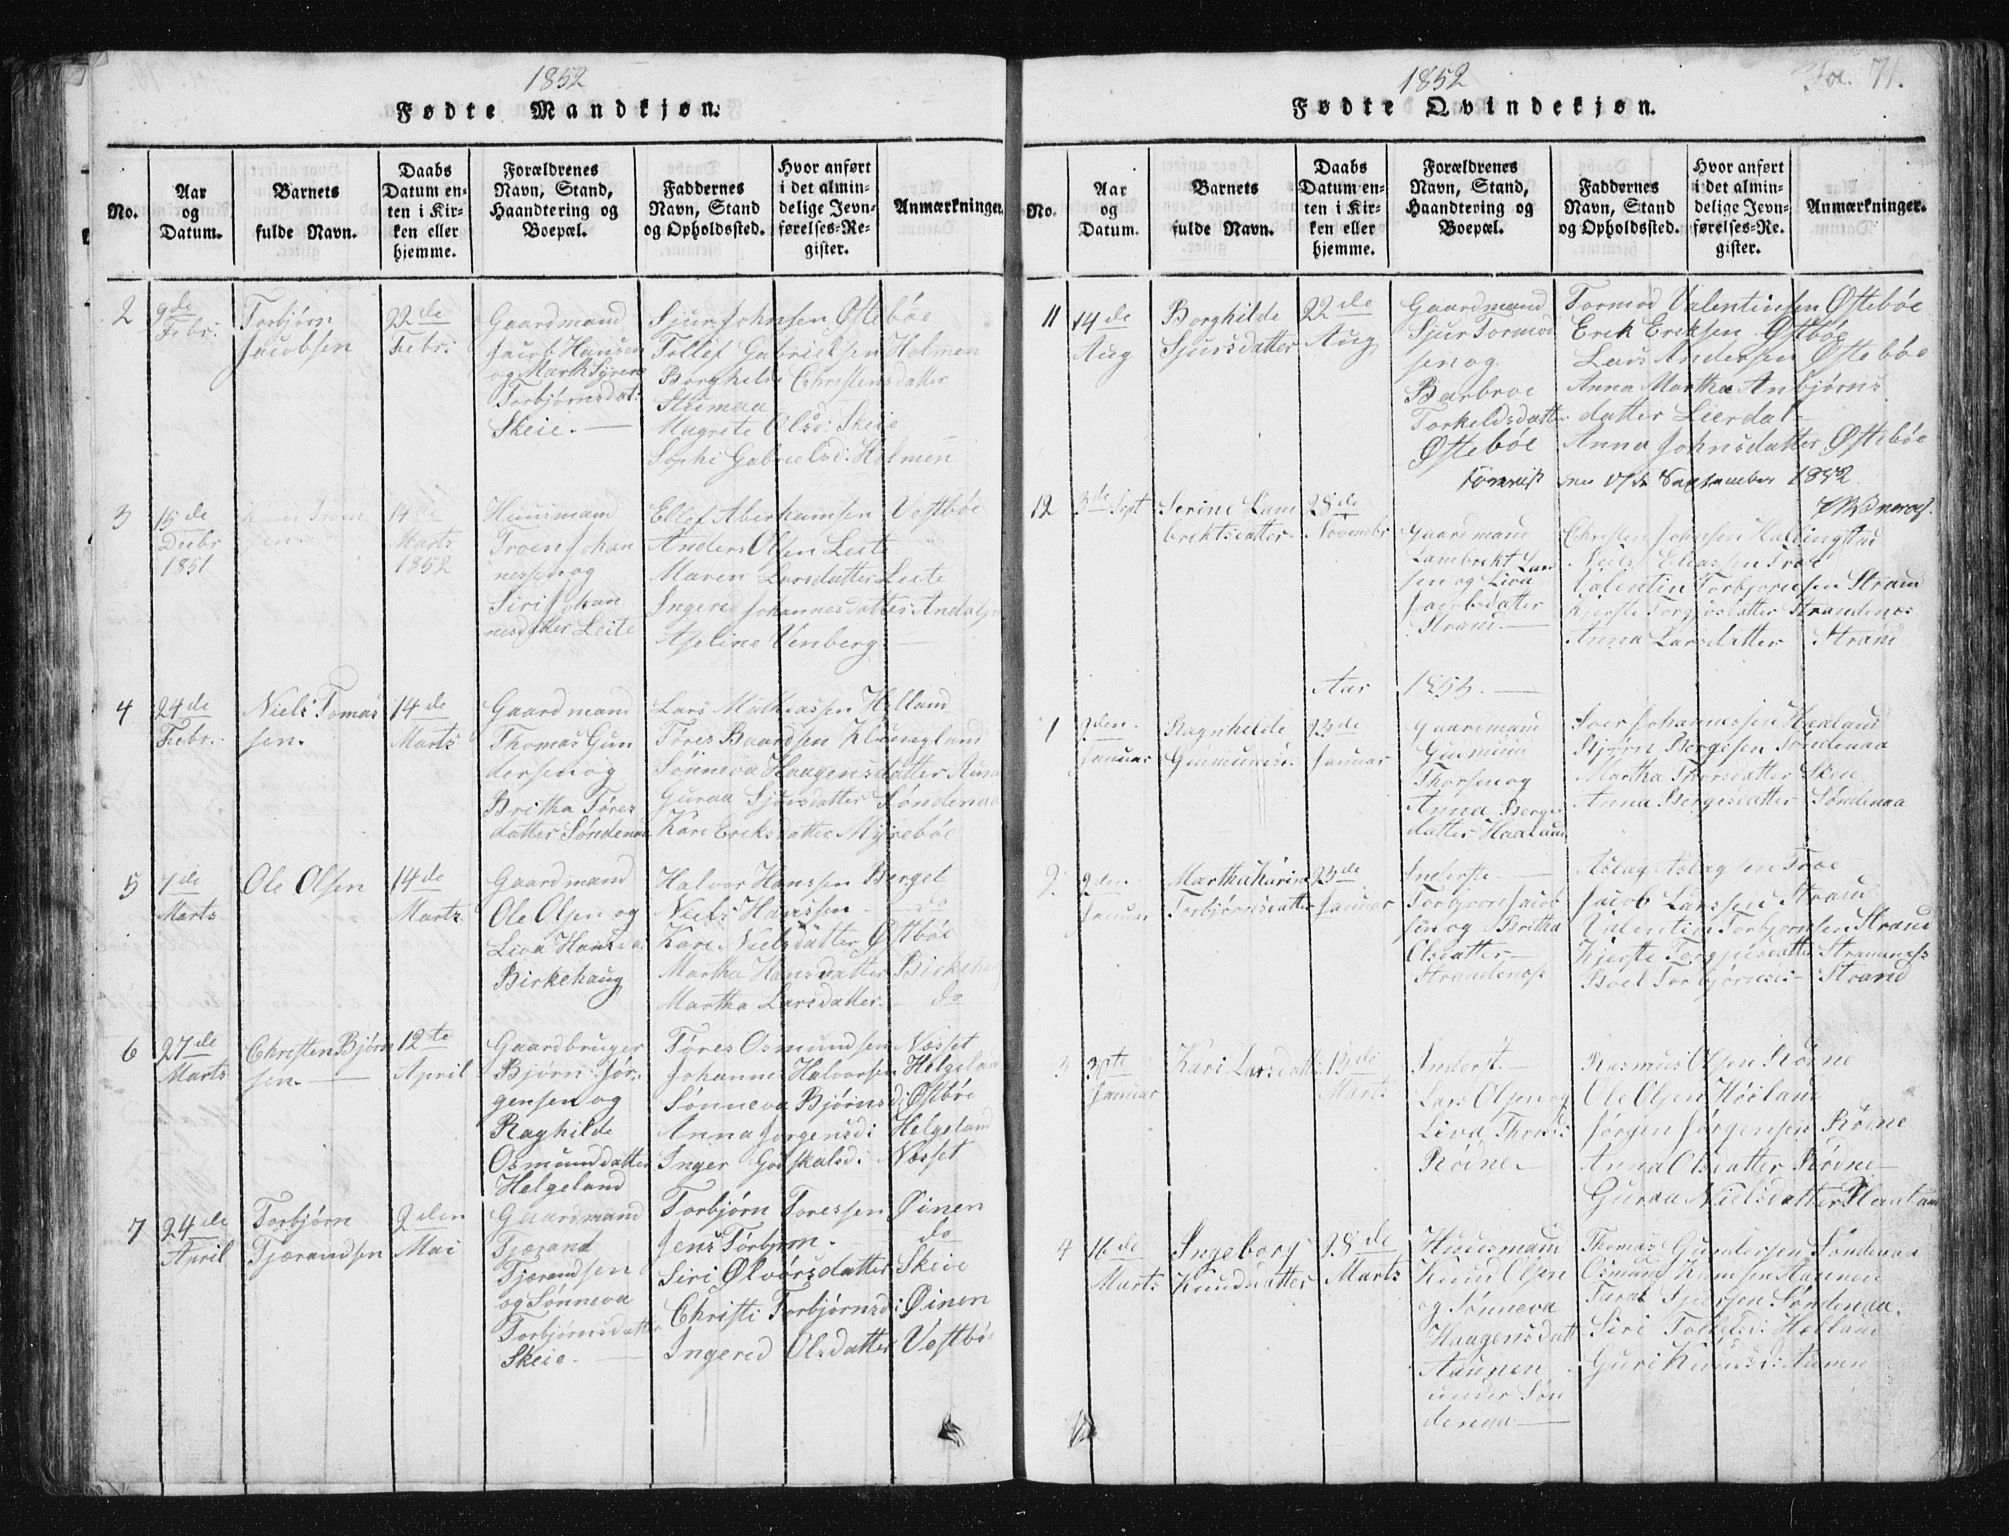 1852
Fødte Mandkjøn.
No.
Aar
og
Datum.
Barnets
fulde Navn.
Daabs
Datum en-
ten i Kir-
ken eller
hjemme.
Forældrenes
Navn, Stand,
Haandtering og
Boepæl.
Faddernes
Navn, Stand
og Opholdssted.
Hvor anført
i det almin-
delige Jevn-
førelses-Re-
gister.
Anmærkninger.
2
9de
Febr:
Torbjørn
Jacobsen
22de
Febr:
Gaardmand
Jacob Hansen
og
Torbjørnsdat:
Skeie.
Sjur Johnsen Østebøe
Tollef Gabrielsen Holmen
Borghilde Christensdatter
Stumaa
Magrete Olsd: Skeie
Sophi Gabrielsd: Holmen
3
15de
Debr
1851
14de
Marts
1852
Huusmand
Troen Johan
nessen og
Siri Johan
nesdatter Leite
Ellef Aberhamsen Vestbøe
Anders Olsen Leite
Maren Larsdatter Leite
Ingered Johannesdatter
Aseline Venberg
4
24de
Febr.
Niels Tomas
sen.
14de
Marts
Gaardmand
Thomas Gun
dersen og
Britha Tøres
datter Søndenaa
Lars Mathiassen Helland
Tøres Baardsen Klungland
Sønneva Haagensdatter
Guraa Sjursdatter Søndenaa
Kari Eriksdatter Myrebøe
5
7de
Marts
Ole Olsen
14de
Marts
Gaardmand
Ole Olsen og
Liva Hansda:
Birkehaug
Halvor Hanssen Berget
Niels Hanssen do
Kari Nielsdatter Østbøe
Martha Hansdatter Birkehaug
Martha Larsdatter do
6
27de
Marts
Christen Bjørn
sen.
12te
April
Gaardbruger
Bjørn Jør-
gensen og
Raghilde
Osmunddatter
Helgeland
Tøres Osmundsen Næsset
Johanne Halvorsen Helgeland
Sønneva Bjørnsd: Østbøe
Anna Jørgensd: Helgeland
Inger Godskalsd: Næsset
7
24de
April
Torbjørn
Tjærandsen
2den
Mai
Gaardmand
Tjærand
Tjærandsen
og Sønneva
Torbjørnsdatter
Skeie.
Torbjørn Toressen Øinen
Jens Torbjørn. do
Siri Ølvørsdatter Skeie
Christi Torbjørnsd: Øinen
Ingered Olsdatter Vestbø
1852
71.
Fødte Qvindekjøn.
No.
Aar
og
Datum.
Barnets
fulde Navn.
Daabs
Datum en-
ten i Kir-
ken eller
hjemme.
Forældrenes
Navn, Stand,
Haandtering og
Boepæl.
Faddernes
Navn, Stand
og Opholdssted.
Hvor anført
i det almin-
delige Jevn-
førelses-Re-
gister.
Anmærkninger.
11
14de
Aug
Borghilde
Sjursdatter
22de
Aug
Gaardmand
Sjur Tormod
sen og
Barbroe
Torkeldsdatter
Østebøe
Tormod Valentinsen Østebøe
Erik Eriksen Østbøe
Lars Andersen Østebøe
Anna Martha Anbjørns
datter Leerdal
Anna Johnsdatter Østebøe
den 17de September 1852.
12
3de Sept
Serine Lam
brektsdatter
28de
Novembr
Gaardmand
Lambrekt Lar
sen og Liva
Jacobsdatter
Strand.
Christen Johnsen Hallingstad
Niels Eliassen Troe
Valentin Torbjørnsen Strand
Kjerste Torgjusdatter Strandenæs
Anna Larsdatter Strand
Aar 1853.
1
2den
Januar
Ragnhilde
Gunmunds:
23de
Januar
Gaardmand
Gunmund
Thorsen og
Anna Berges
datter Haaland
Iver Johannessen Haaland
Bjørn Bergesen Søndenaa
Martha Thorsdatter Skeie
Anna Bergesdatter Søndenaa
2
2den
Januar
Martha Karine
Torbjørnsdatter
23de
Januar
Inderste.
Torbjørn Jacob
sen og Britha
Olsdatter
Strandenæs
Aslag Aslagsen Troe
Jacob Larssen Strand
Valentin Torbjørnsen Strand
Kjerste Torgjusdatter Strandenæs
Boel Torbjørnsd: Strand
3
Januar
Kari Larsdatter
13de
Marts
Inderst.
Lars Olsen og
Liva Thorsd:
Rødne
Rasmus Olsen Rødne
Ole Olsen Høiland
Jørgen Jørgensen Rødne
Anna Olsdatter Rødne
Guraa Nielsdatter Haaland
4
16de
Marts
Ingeborg
Knudsdatter
28de
Marts
Huusmand
Knud Olsen
og Sønneva
Haagensdatt
Aaunen
under Søn
denaa
Thomas Gundersen Søndenaa
Osmund Knudsen Aaunen
Taral Sjursen Søndenaa.
Siri Tollefsd: Helland
Guri Knudsd: Aunen